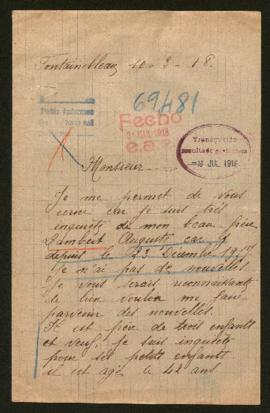 Fontainebleau 10 - 3 - 18.
69481
Fecho
MAR. 1918
e.a.
JUL. 1918
Monsieur
Je me permet de vous
car je suis très
inquiete de mon beau frère
Lambert Auguste car
depuis le 23 Decembre 1917
je n'ai pas de nouvelles
Je vous serais reconnaissante
de bien vouloir me faire
parvenir des nouvelles.
Il est père de trois enfants
et veuf, je suis inquiete
pour ses petits enfants
il est agé de 42 ans